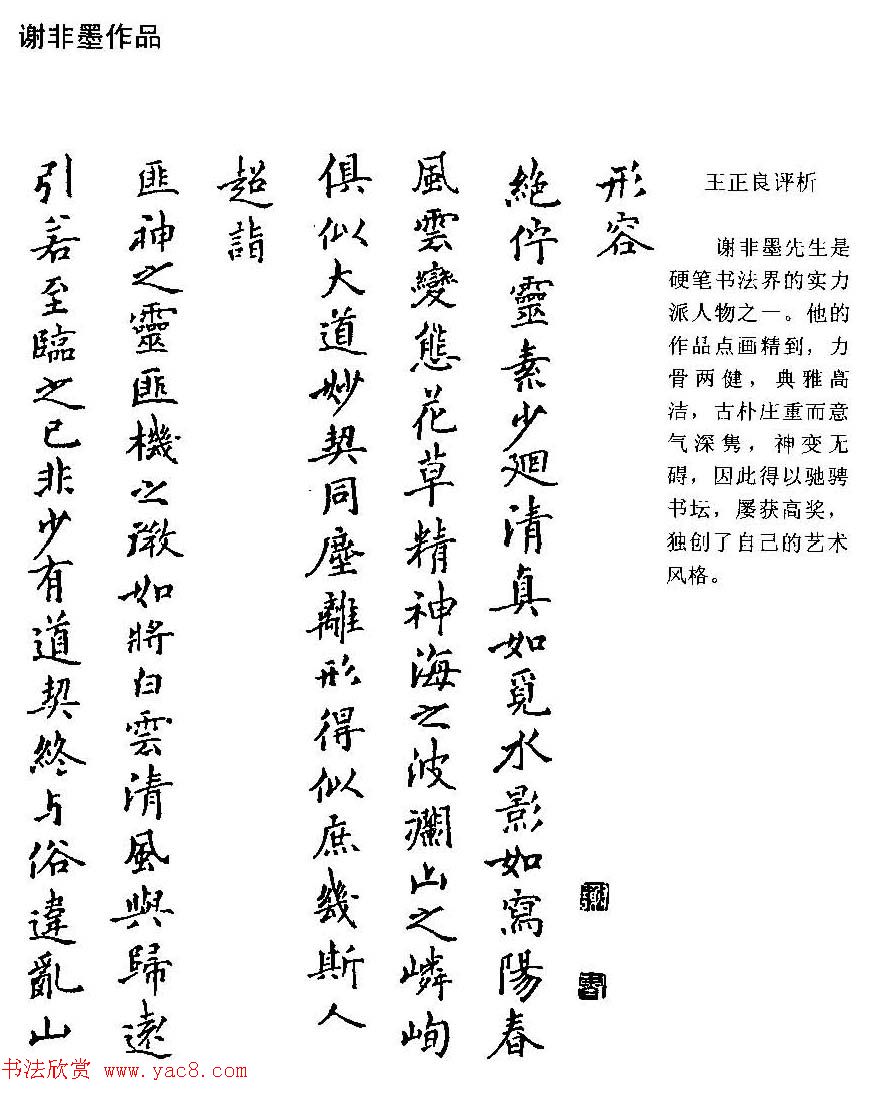 谢非墨作品
王正良评析
谢非墨先生是
硬笔书法界的实力
派人物之一。他的
作品点画精到，力
骨两健，典雅高
洁，古朴庄重而意
气深隽，神变无
碍，因此得以驰骋
书坛，屡获高奖，
独创了自己的艺术
风格。
形容
絶佇靈素少廻清真如覓水影如寫陽春
風雲變態花草精神海之波瀾山之嶙峋
俱似大道妙契同塵離形得似庶幾斯人
超詣
匪神之靈匪機之微如將白雲清風與歸遠
引若至臨之已非少有道契終与俗違亂山
书法欣赏 www.yac8.com